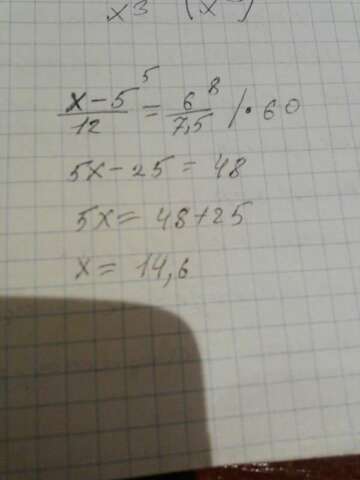 x³ (x
(x-5)/12 ⁵ = 6/7,5 ⁸ / · 60
5x-25 = 48
5x = 48+25
x = 14,6